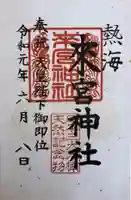 熱海
來宮神社
奉祝天皇陛下御即位
令和元年六月八日